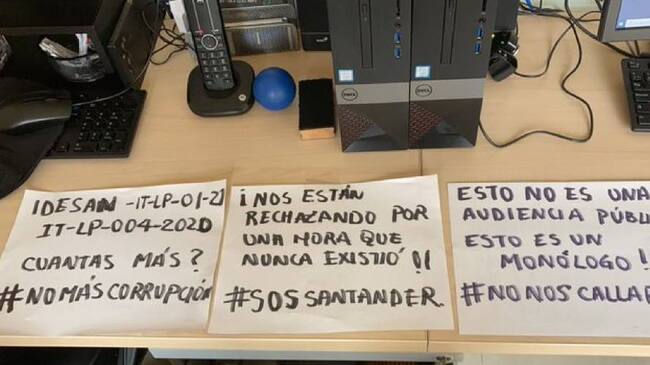 DELL
DELL
IDESAN-IT-LP-01-21
IT-LP-004-2020
CUANTAS MÁS?
#NOMÁSCORRUPCIÓN
¡NOS ESTÁN
RECHAZANDO POR
UNA MORA QUE
NUNCA EXISTIÓ!!
#SOSSANTANDER
ESTO NO ES UNA
AUDIENCIA PÚBL
ESTO ES UN
MONÓLOGO!
#NONOSCALLAR